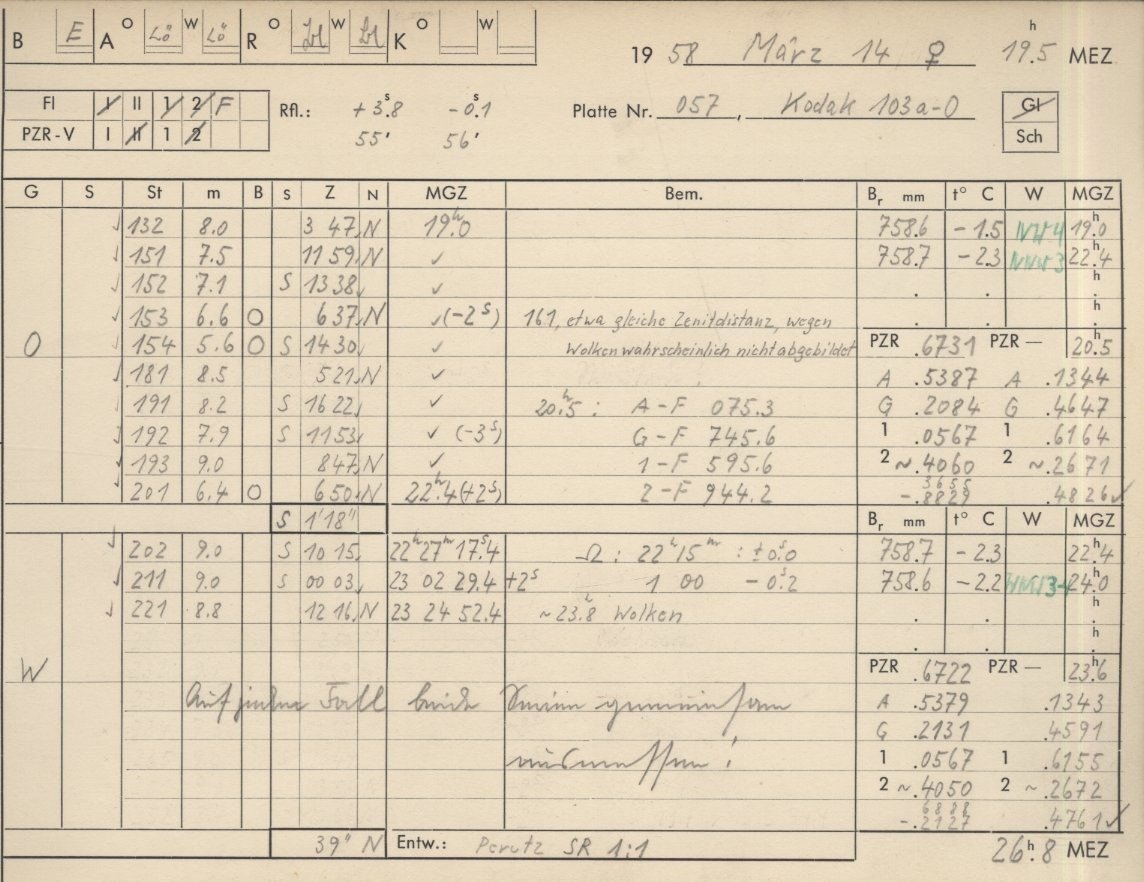 B E A O Lö W Lö R O W K O W
19 58 März 14 ♀ 19.5 h MEZ
Fl I II 1 2 F Rfl.: +3.8 s -0.1 s Platte Nr. 057, Kodak 103a-O Gl
PZR-V I II 1 2 55' 56' Sch
G S St m B S Z N MGZ Bem. Br mm t° C W MGZ
✓ 132 8.0 3 47 N 19h.0 758.6 -1.5 NW4 19h.0
✓ 151 7.5 11 59 N ✓ 758.7 -2.3 NNW3 22h.4
✓ 152 7.1 S 13 38 ✓ . . h
✓ 153 6.6 O 6 37 N ✓(-2s) 161, etwa gleiche Zenitdistanz, wegen . . h
O ✓ 154 5.6 O S 14 30 ✓ Wolken wahrscheinlich nicht abgebildet PZR .6731 PZR — 20h.5
✓ 181 8.5 5 21 N ✓ A .5387 A .1344
✓ 191 8.2 S 16 22 ✓ 20h.5 : A-F 075.3 G .2084 G .4647
✓ 192 7.9 S 11 53 ✓ (-3s) G-F 745.6 1 .0567 1 .6164
✓ 193 9.0 8 47 N ✓ 1-F 595.6 2 ~.4060 2 ~.2671
✓ 201 6.4 O 6 50 N 22h.4(+2s) 2-F 944.2 3655 -.8829 .4826 ✓
S 1'18" Br mm t° C W MGZ
✓ 202 9.0 S 10 15 22h 27m 17s.4 Ω: 22h 15m : ±0s.0 758.7 -2.3 22h.4
✓ 211 9.0 S 00 03 23 02 29.4 +2s 1 00 -0.2 758.6 -2.2 24h.0
✓ 221 8.8 12 16 N 23 24 52.4 ~23h.8 Wolken . . h
. . h
W PZR .6722 PZR — 23h.6
Auf jeden Fall beide Serien gemeinsam A .5379 .1343
G .2131 .4591
ausmessen! 1 .0567 1 .6155
2 ~.4050 2 ~.2672
6888 -.2127 .4761 ✓
39" N Entw.: Perutz SR 1:1 26h.8 MEZ